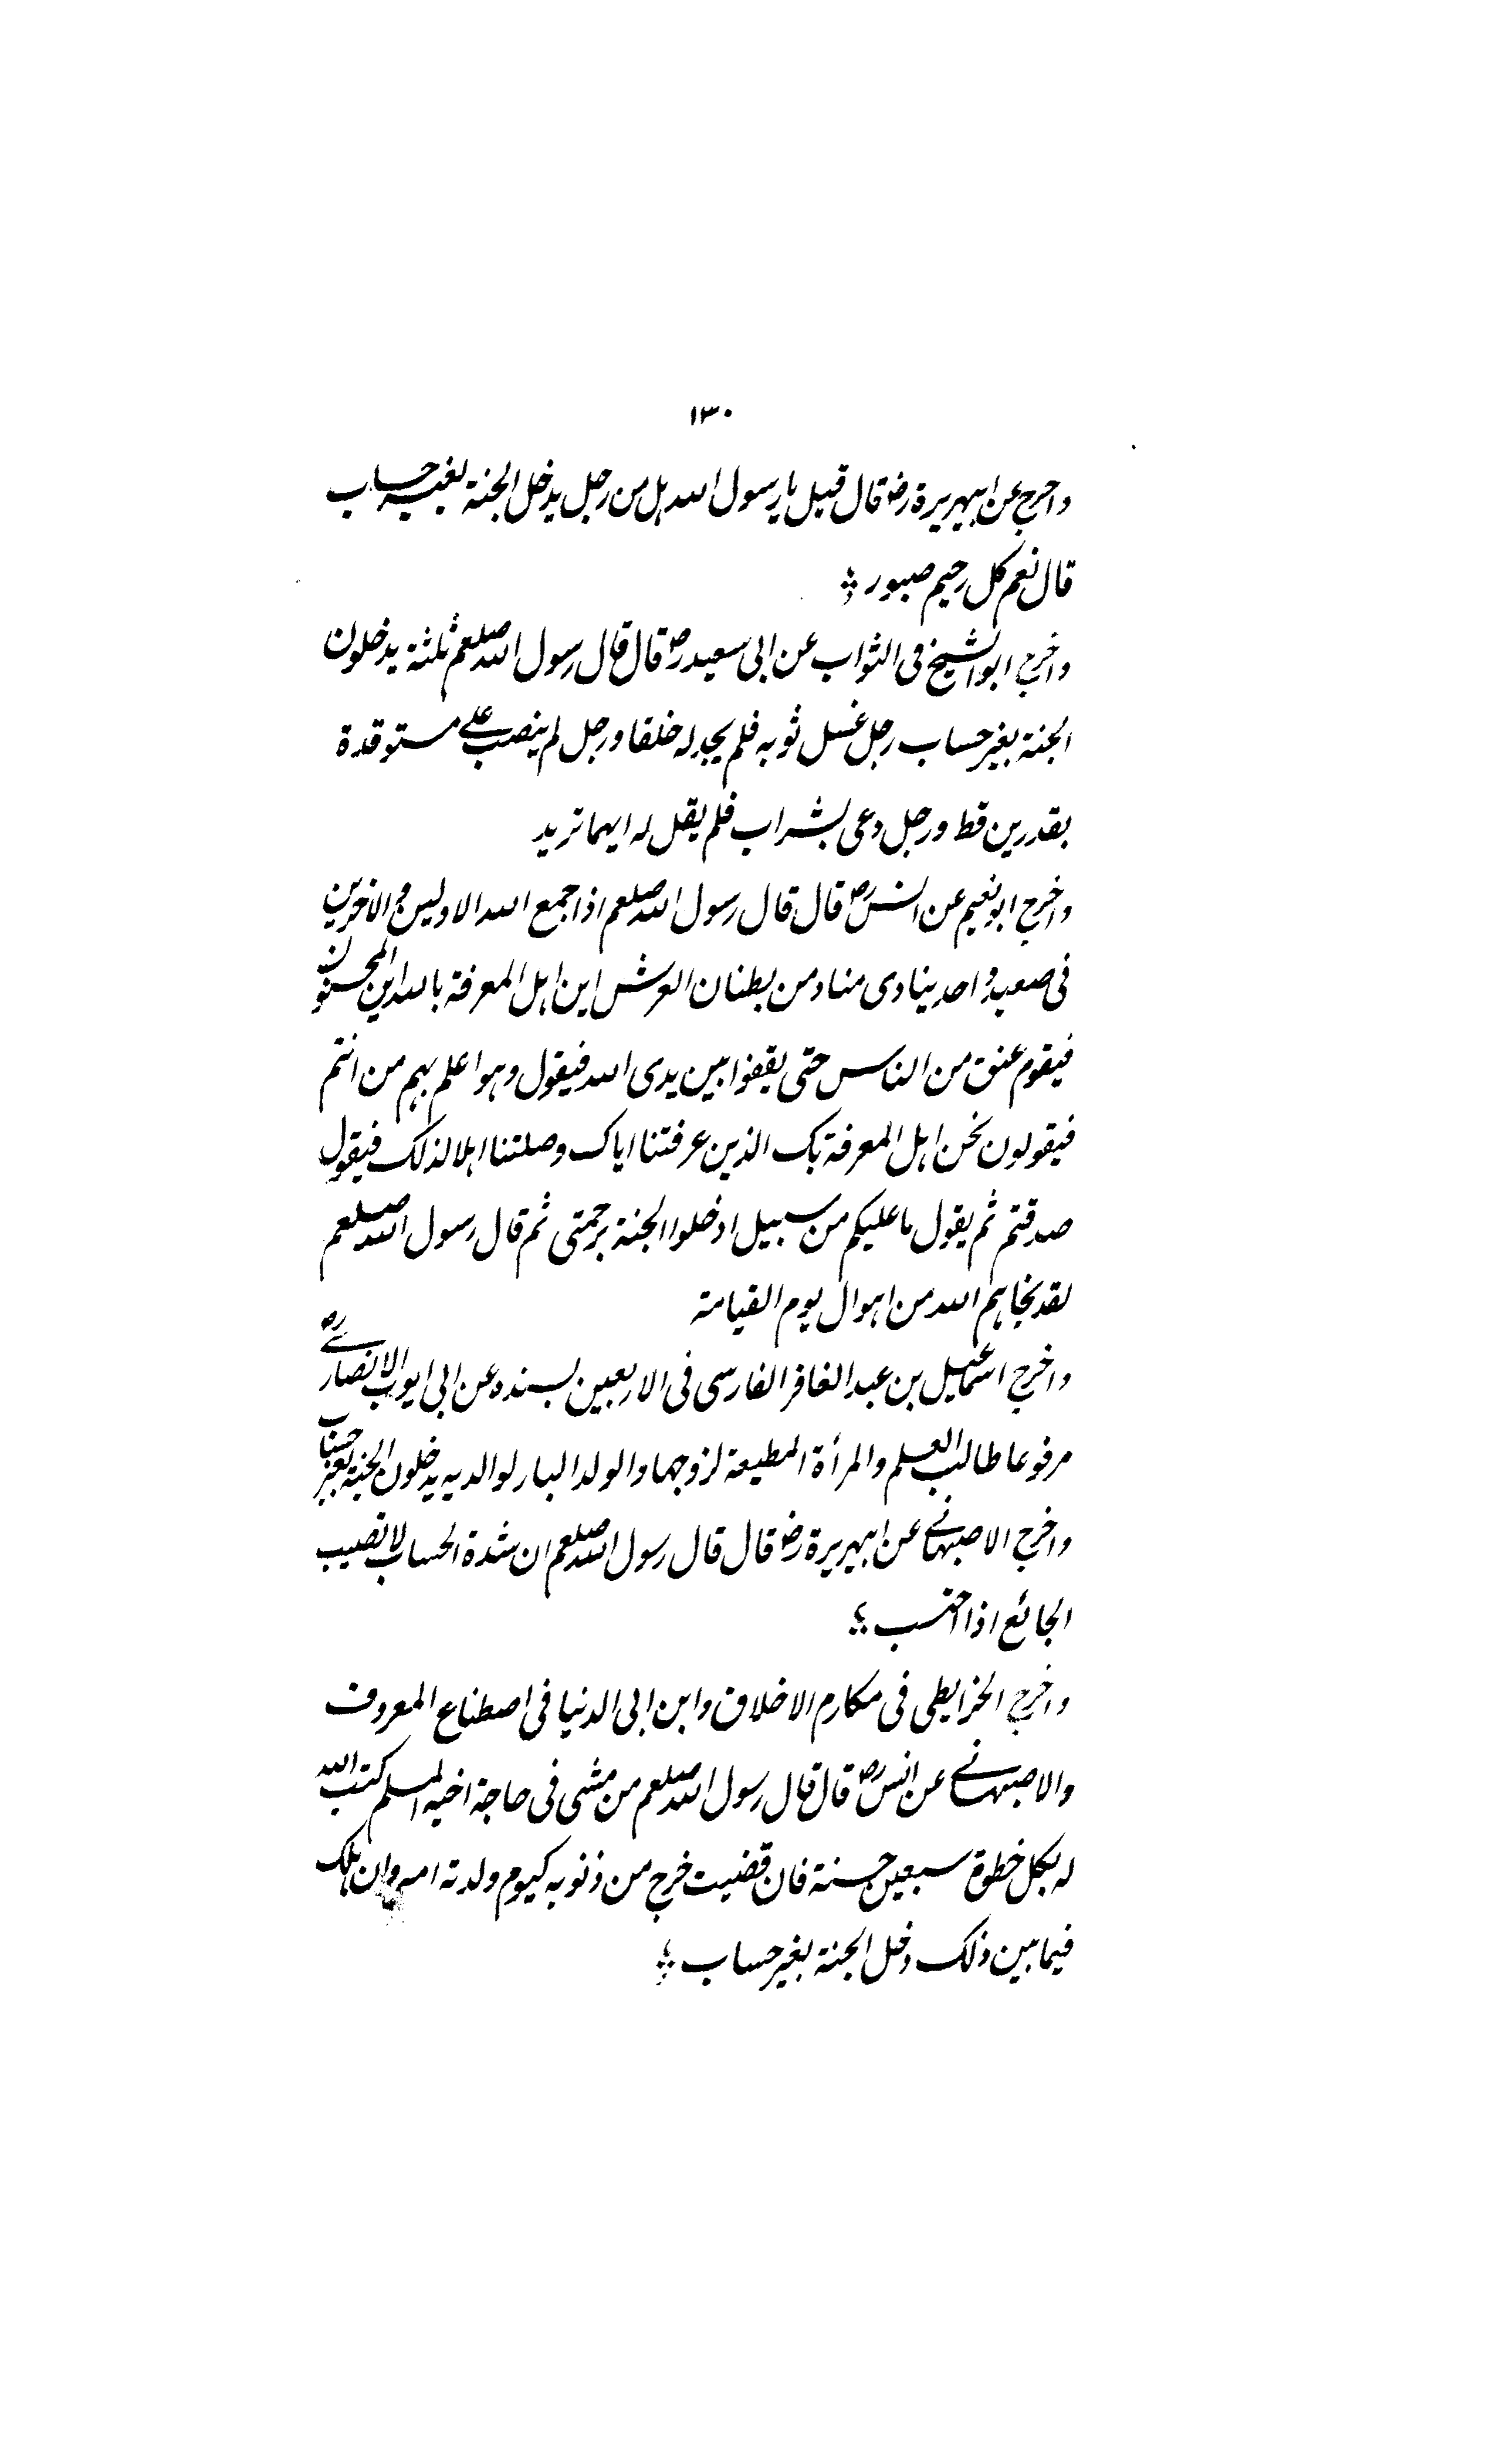 ۱۳۰
واخرج عن ابیهریرة رض قال قیل یا رسول الله هل من رجل یدخل الجنة بغیر حساب
قال نعم کل رحیم صبور
واخرج ابو الشیخ فی الثواب عن ابی سعید رض قال قال رسول الله صلعم ثلثة یدخلون
الجنة بغیر حساب رجل غسل ثوبه فلم یجد له خلقا ورجل لم ینصب علی مستوقدة
بقدرین قط ورجل دعی بشراب فلم یقل له ایهما ترید
واخرج ابو نعیم عن انس رض قال قال رسول الله صلعم اذا جمع الله الاولین والاخرین
فی صعید واحد ینادی مناد من بطنان العرش این اهل المعرفة بالله این المحسنون
فیقوم عنق من الناس حتی یقفوا بین یدی الله فیقول وهو اعلم بهم من انتم
فیقولون نحن اهل المعرفة بک الذین عرفتنا ایاک وصلتنا اهلا لذلک فیقول
صدقتم ثم یقول ما علیکم من سبیل ادخلوا الجنة برحمتی ثم قال رسول الله صلعم
لقد نجاهم الله من اهوال یوم القیامة
واخرج اسماعیل بن عبد الغافر الفارسی فی الاربعین بسنده عن ابی ایوب الانصاری رض
مرفوعا طالب العلم والمرأة المطیعة لزوجها والولد البار لوالدیه یدخلون الجنة بغیر حساب
واخرج الاصبهانی عن ابیهریرة رض قال قال رسول الله صلعم ان شدة الحساب لا تصیب
الجائع اذا احتسب
واخرج الخرایطی فی مکارم الاخلاق وابن ابی الدنیا فی اصطناع المعروف
والاصبهانی عن انس رض قال قال رسول الله صلعم من مشی فی حاجة اخیه المسلم کتب الله
له بکل خطوة سبعین حسنة فان قضیت خرج من ذنوبه کیوم ولدته امه وان هلک
فیما بین ذلک دخل الجنة بغیر حساب